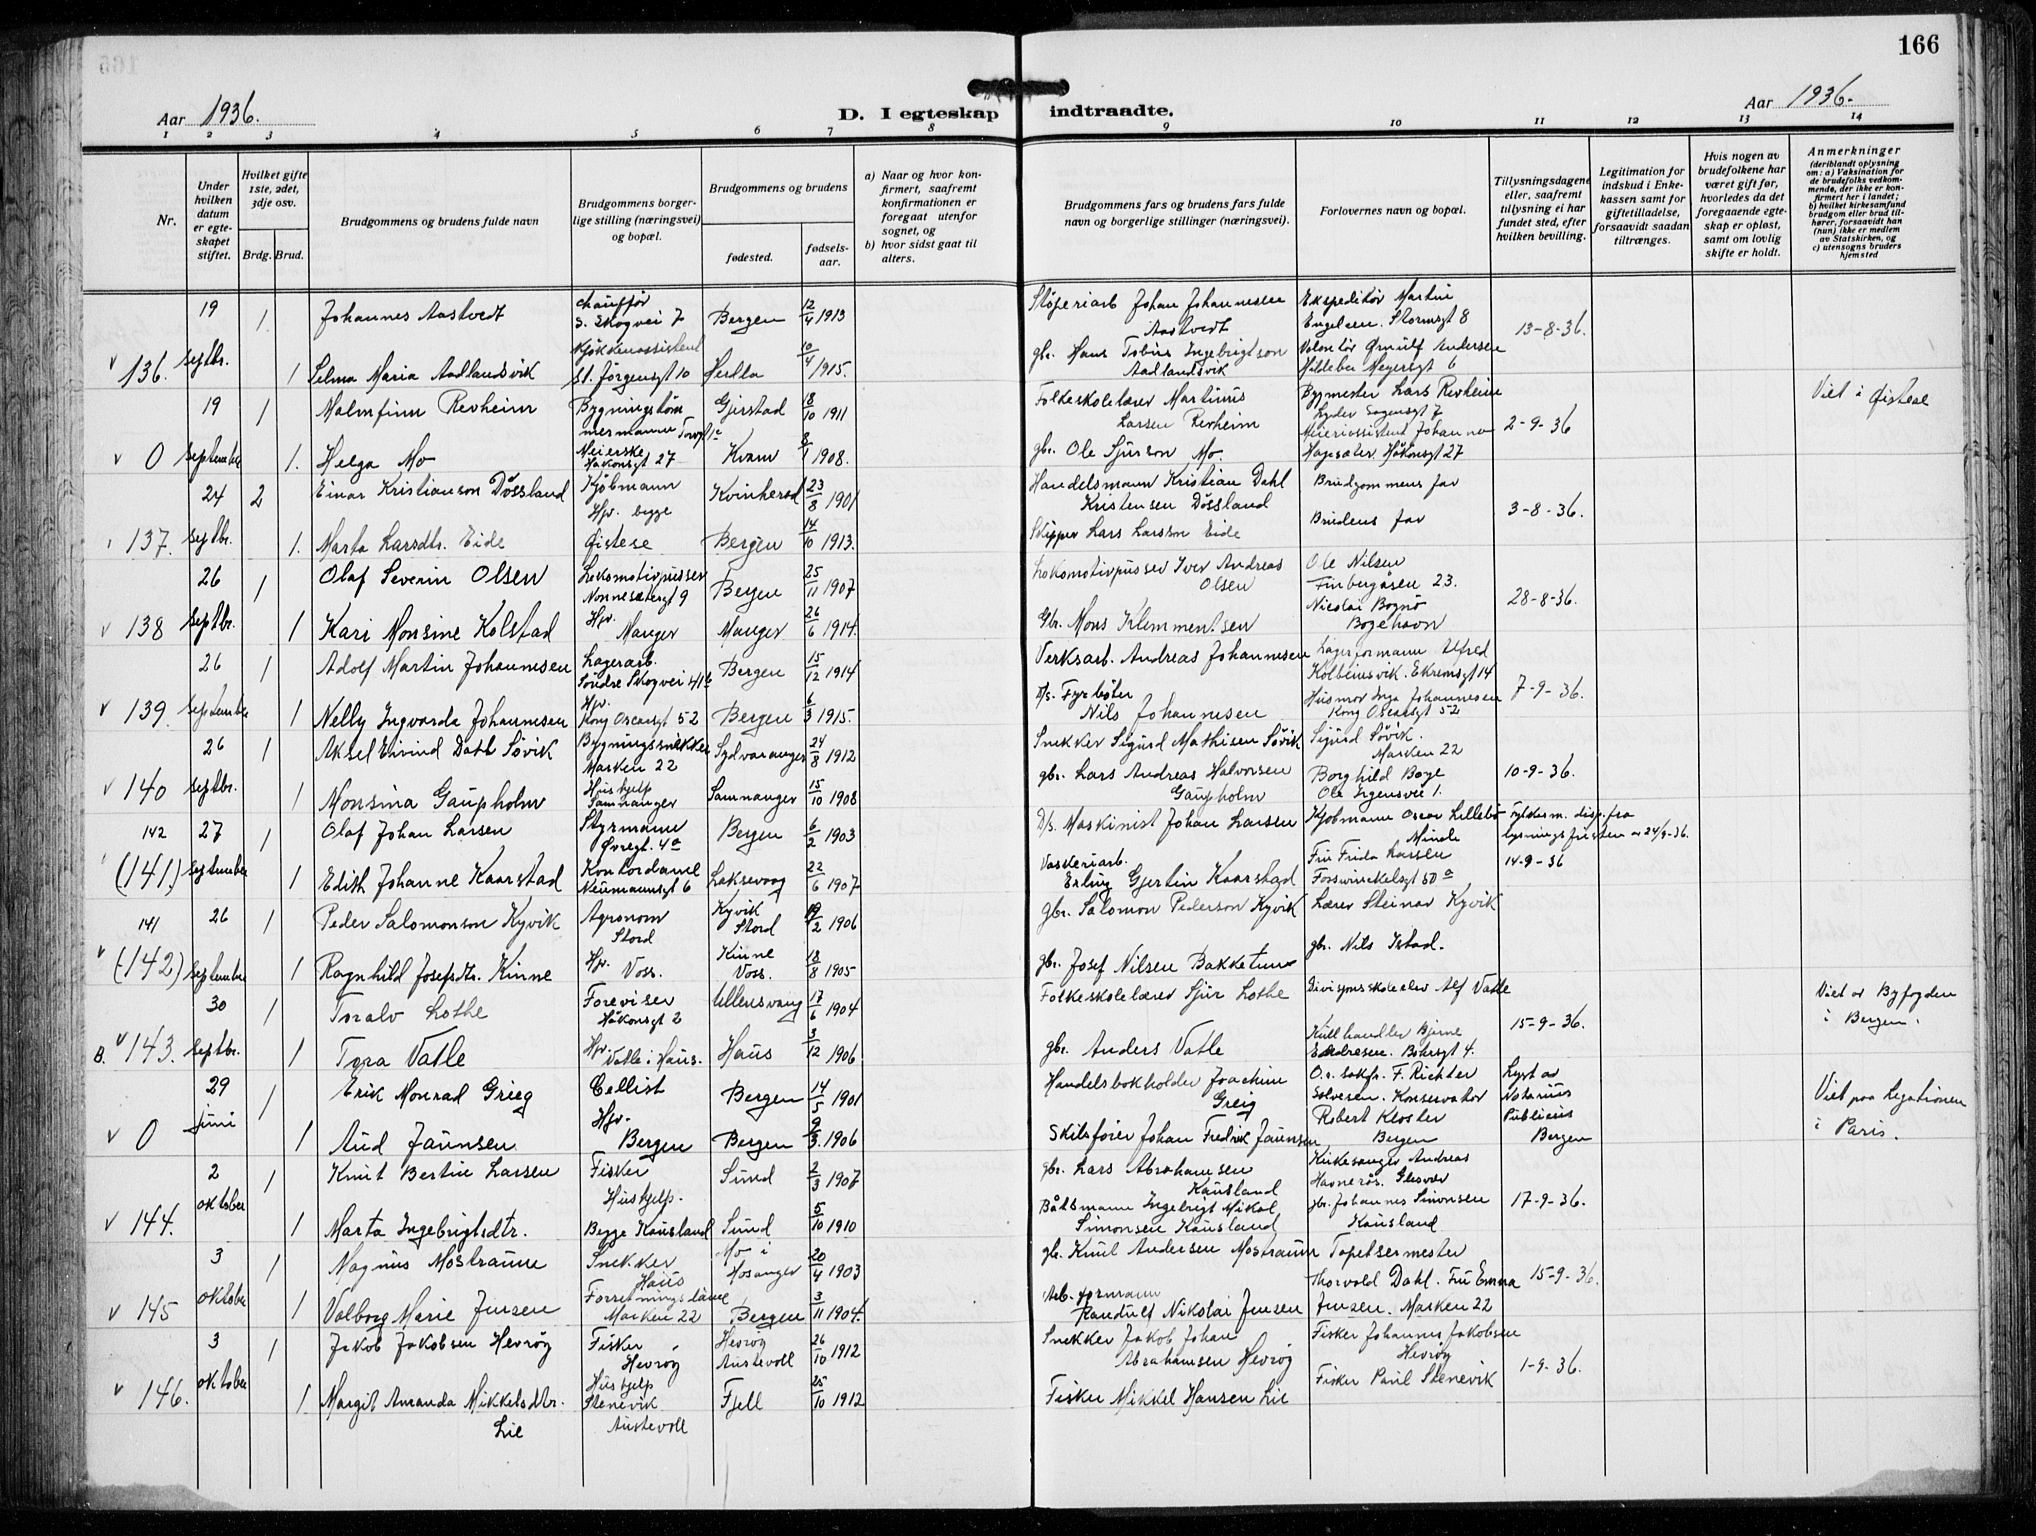 166
Aar 1936.
D. I egteskap indtraadte.
Aar 1936.
1 2 3 4 5 6 7 8 9 10 11 12 13 14
Nr.
Under hvilken datum er egteskapet stiftet.
Hvilket gifte 1ste, 2det, 3dje osv.
Brdg. Brud.
Brudgommens og brudens fulde navn
Brudgommens borgerlige stilling (næringsvei) og bopæl.
Brudgommens og brudens
fødested.
fødselsaar.
a) Naar og hvor konfirmert, saafremt konfirmationen er foregaat utenfor sognet, og
b) hvor sidst gaat til alters.
Brudgommens fars og brudens fars fulde navn og borgerlige stillinger (næringsvei).
Forlovernes navn og bopæl.
Tillysningsdagene eller, saafremt tillysning ei har fundet sted, efter hvilken bevilling.
Legitimation for indskud i Enkekassen samt for giftetilladelse, forsaavidt saadan tiltrænges.
Hvis nogen av brudefolkene har været gift før, hvorledes da det foregaaende egteskap er opløst, samt om lovlig skifte er holdt.
Anmerkninger
(deriblandt oplysning om: a) Vaksination for de brudefolks vedkommende, der ikke er konfirmert her i landet; b) hvilket kirkesamfund brudgom eller brud tilhører, forsaavidt han (hun) ikke er medlem av Statskirken, og c) utensogns bruders hjemsted
19 1. Johannes Aastvedt chauffør S. Skogvei 7 Bergen 12/4 1913 Støperiarb Johan Johannesen Aastvedt Ekspeditør Martin Engelsen. Stormsgt 8 13-8-36.
v 136. Septbr. 1 Selma Maria Aadlandsvik Kjøkkenassistent St. Jørgensgt 10 Herdla 10/4 1915. gbr. Hans Tobias Ingebrigtson Aadlandsvik Volontør Ørnulf Andersen Hildebr Meyersgt 6
19 1 Malmfinn Revheim Bygningstømmermann Torvgt 1c Gjerstad 18/10 1911 Folkeskolelærer Martinus Larsen Revheim Bygmester Lars Revheim Lyder Sagensgt 7 2-9-36 Viet i Øistese
v 0 September 1. Helga Mo Meierske Håkonsgt 27 Kvam 8/1 1908. gbr. Ole Sjurson Mo. Meieriassistent Johanna Hagesæter Håkonsgt 27
24 2 Einar Kristianson Døssland Kjøbmann Hjv. begge Kvinherad 23/8 1901 Handelsmann Kristian Dahl Kristensen Døssland Brudgommens far 3-8-36.
137. Septbr. 1. Marta Larsdtr. Eide Øistese Bergen 14/10 1913. Skipper Lars Larsson Eide Brudens far
26 1 Olaf Severin Olsen Lokomotivpusser Nonnesætergt 9 Bergen 25/11 1907 Lokomotivpusser Iver Andreas Olsen Ole Nilsen Finbergåsen 23. 28-8-36.
v 138 Septbr. 1 Kari Monsine Kolstad Hjv. Manger Manger 26/6 1914. Gbr. Mons Klemmentsen Nicolai Bognø Bogehavn
26 1 Adolf Martin Johannesen Lagerarb. Søndre Skogvei 41b Bergen 15/12 1914 Verksarb. Andreas Johannesen Lagerformann Alfred Kolbeinsvik. Ekrensgt 14 7-9-36.
v 139. September 1 Nelly Ingvarda Johannesen Hjv. Kong Oscarsgt 52 Bergen 6/3 1915. D/s. Fyrbøter Nils Johannesen Husmor Inga Johannesen Kong Oscarsgt 52
26 1 Aksel Eivind Dahl Søvik Bygningssnekker Marken 22 Sydvaranger 24/8 1912 Snekker Sigurd Mathisen Søvik Sigurd Søvik. Marken 22 10-9-36.
v 140 Septbr. 1 Monsina Gaupholm Hushjelp Samnanger Samnanger 15/10 1908 gbr. Lars Andreas Halvorsen Gaupholm Borghild Boge Ole Irgensvei 1.
142 27 1 Olaf Johan Larsen Styrmann Øvregt. 4a Bergen 6/2 1903 D/s. Maskinist Johan Larsen Kjøbmann Oscar Lillebø Minde Fylkesm. disp. fra lysningsfristen av 24/9-36.
(141.) September 1 Edith Johanne Kaarstad Kontordame Neumannsgt 6 Laksevaag 22/6 1907 Vaskeriarb. Erling Gjertin Kaarstad Fru Frida Larsen Fosswinckelsgt 50a 14-9-36
141 26 1 Peder Salomonson Kyvik Agronom Stord Kyvik Stord 19/2 1906 gbr. Salomon Pederson Kyvik Lærer Steinar Kyvik
v (142) September 1 Ragnhild Josefsdtr. Kinne Hjv. Voss. Kinne Voss. 18/8 1905 gbr. Josef Nilsen Bakketun gbr. Nils Istad.
30 1 Toralv Lothe Foreviser Håkonsgt 2 Ullensvang 17/6 1904 Folkeskolelærer Sjur Lothe Divisjonsskoleelev Alf Vatle 15-9-36. Viet av Byfogden i Bergen.
B. v 143. Septbr. 1 Tora Vatle Hjv. Vatle i Haus. Haus 3/12 1906 gbr. Anders Vatle Kullhandler Bjarne Endresen. Bøhrsgt 4.
29 1 Erik Monrad Grieg Cellist Bergen 14/5 1901 Handelsbokholder Joachim Greig O.r. sakfr. F. Richter Solvesen. Konservator Lyst av Notarius Publicus Bergen Viet paa Legationen i Paris.
v 0 juni 1 Aud Jaunsen Hjv. Bergen Bergen 9/3. 1906 Skibsfører Johan Fredrik Jaunsen Robert Kloster Bergen
2 1 Knut Bertin Larsen Fisker Sund 2/3 1907 gbr. Lars Abrahamsen Kausland Kirkesanger Andreas Havnerås. Glesvær 17-9-36.
v 144. oktober 1 Marta Ingebrigtsdtr. Hushjelp. Begge Kausland Sund 5/10 1910 Båtsmann Ingebrigt Mikal Simonsen Kausland gbr. Johannes Simonsen Kausland
3 1 Magnus Mostraum Snekker Haus Mo i Hosanger 20/4 1903 gbr. Knut Andersen Mostraum Tapetsermester Thorvald Dahl. Fru Emma 15-9-36.
v 145 oktober 1 Valborg Marie Jensen Forretningsdame Marken 22 Bergen 3/11 1904. Arb. formann Randulf Nikolai Jensen Jensen. Marken 22
3 1 Jakob Jakobsen Hevrøy Fisker Hevrøy Hevrøy Austevoll 26/10 1912 Snekker Jakob Johan Abrahamsen Hevrøy Fisker Johannes Jakobsen Hevrøy 1-9-36.
v 146. oktober 1 Margit Amanda Mikkelsdtr. Lie Hushjelp Stenevik Austevoll Fjell 25/10 1912 Fisker Mikkel Hansen Lie Fisker Paul Stenevik